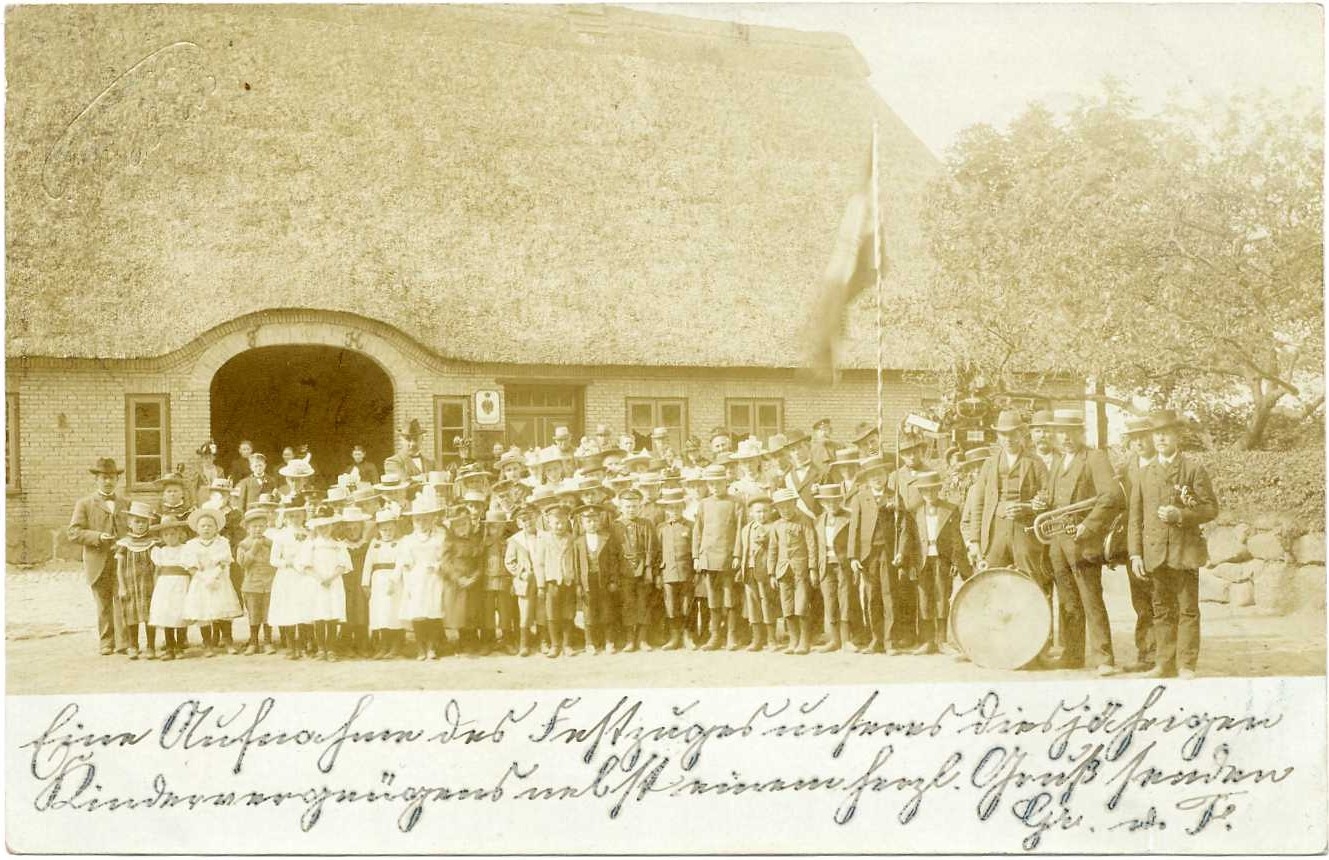 Eine Aufnahme des Festzuges unseres diesjährigen
Kindervergnügens nebst einem herzl. Gruß senden
Gr. u. Fr.